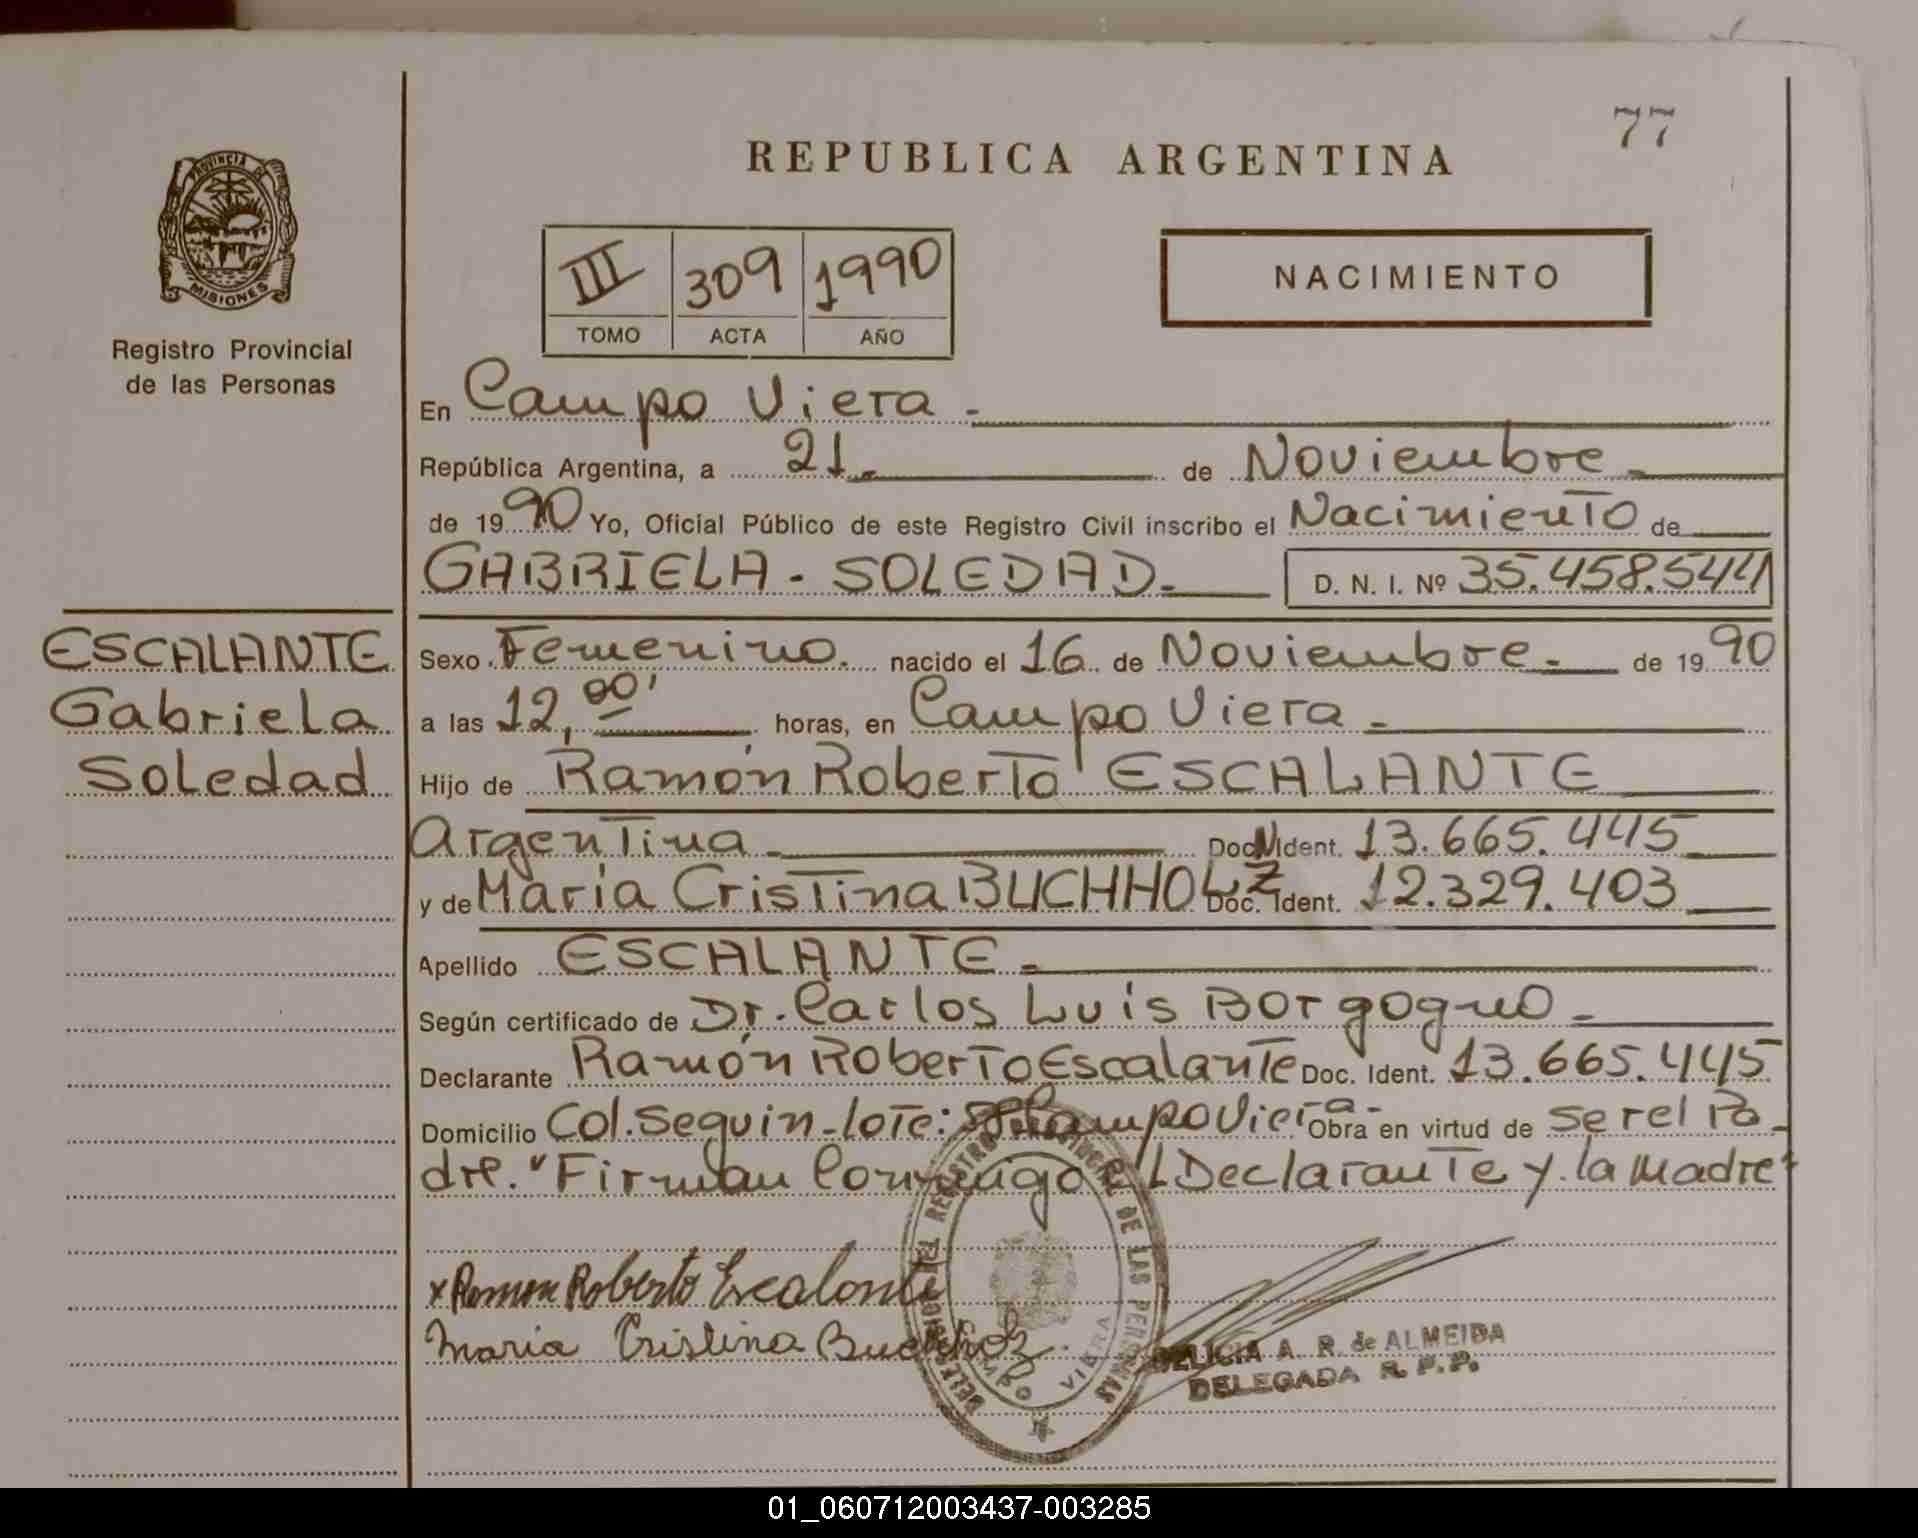 77
REPUBLICA ARGENTINA
PROVINCIA DE
MISIONES
Registro Provincial
de las Personas
III 309 1990
TOMO ACTA AÑO
NACIMIENTO
En Campo Viera -
República Argentina, a 21 de Noviembre
de 1990 Yo, Oficial Público de este Registro Civil inscribo el Nacimiento de
GABRIELA - SOLEDAD. D. N. I. Nº 35.458.544
ESCALANTE
Gabriela
Soledad
Sexo Femenino. nacido el 16 de Noviembre de 1990
a las 12,00' horas, en Campo Viera -
Hijo de Ramón Roberto ESCALANTE
Argentina Doc. N Ident. 13.665.445
y de María Cristina BUCHHOLZ Doc. Ident. 12.329.403
Apellido ESCALANTE -
Según certificado de Dr. Carlos Luis Borgogno -
Declarante Ramón Roberto Escalante Doc. Ident. 13.665.445
Domicilio Col. Seguin - lote: Campo Viera - Obra en virtud de ser el Pa-
dre. "Firman Conmigo el Declarante y la Madre"
x Ramon Roberto Escalante
Maria Cristina Buchholz
DELICIA A. R. de ALMEIDA
DELEGADA R. P. P.
01_060712003437-003285